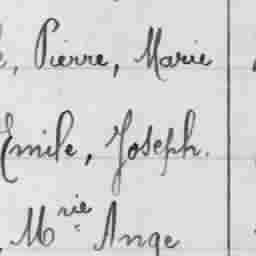 , Pierre, Marie
Emile, Joseph.
, Mrie Ange